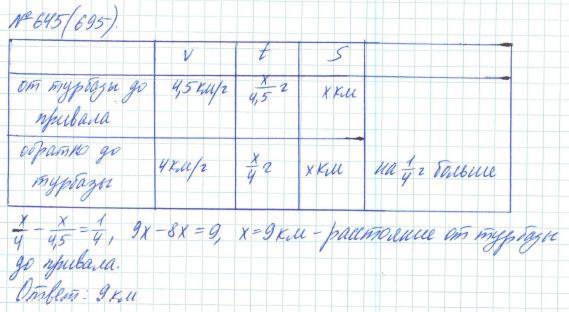 № 645(695).
v t S
от турбазы до привала 4,5 км/г x/4,5 г x км
обратно до турбазы 4 км/г x/4 г x км на 1/4 г больше
x/4 - x/4,5 = 1/4, 9x - 8x = 9, x = 9 км - расстояние от турбазы
до привала.
Ответ: 9 км